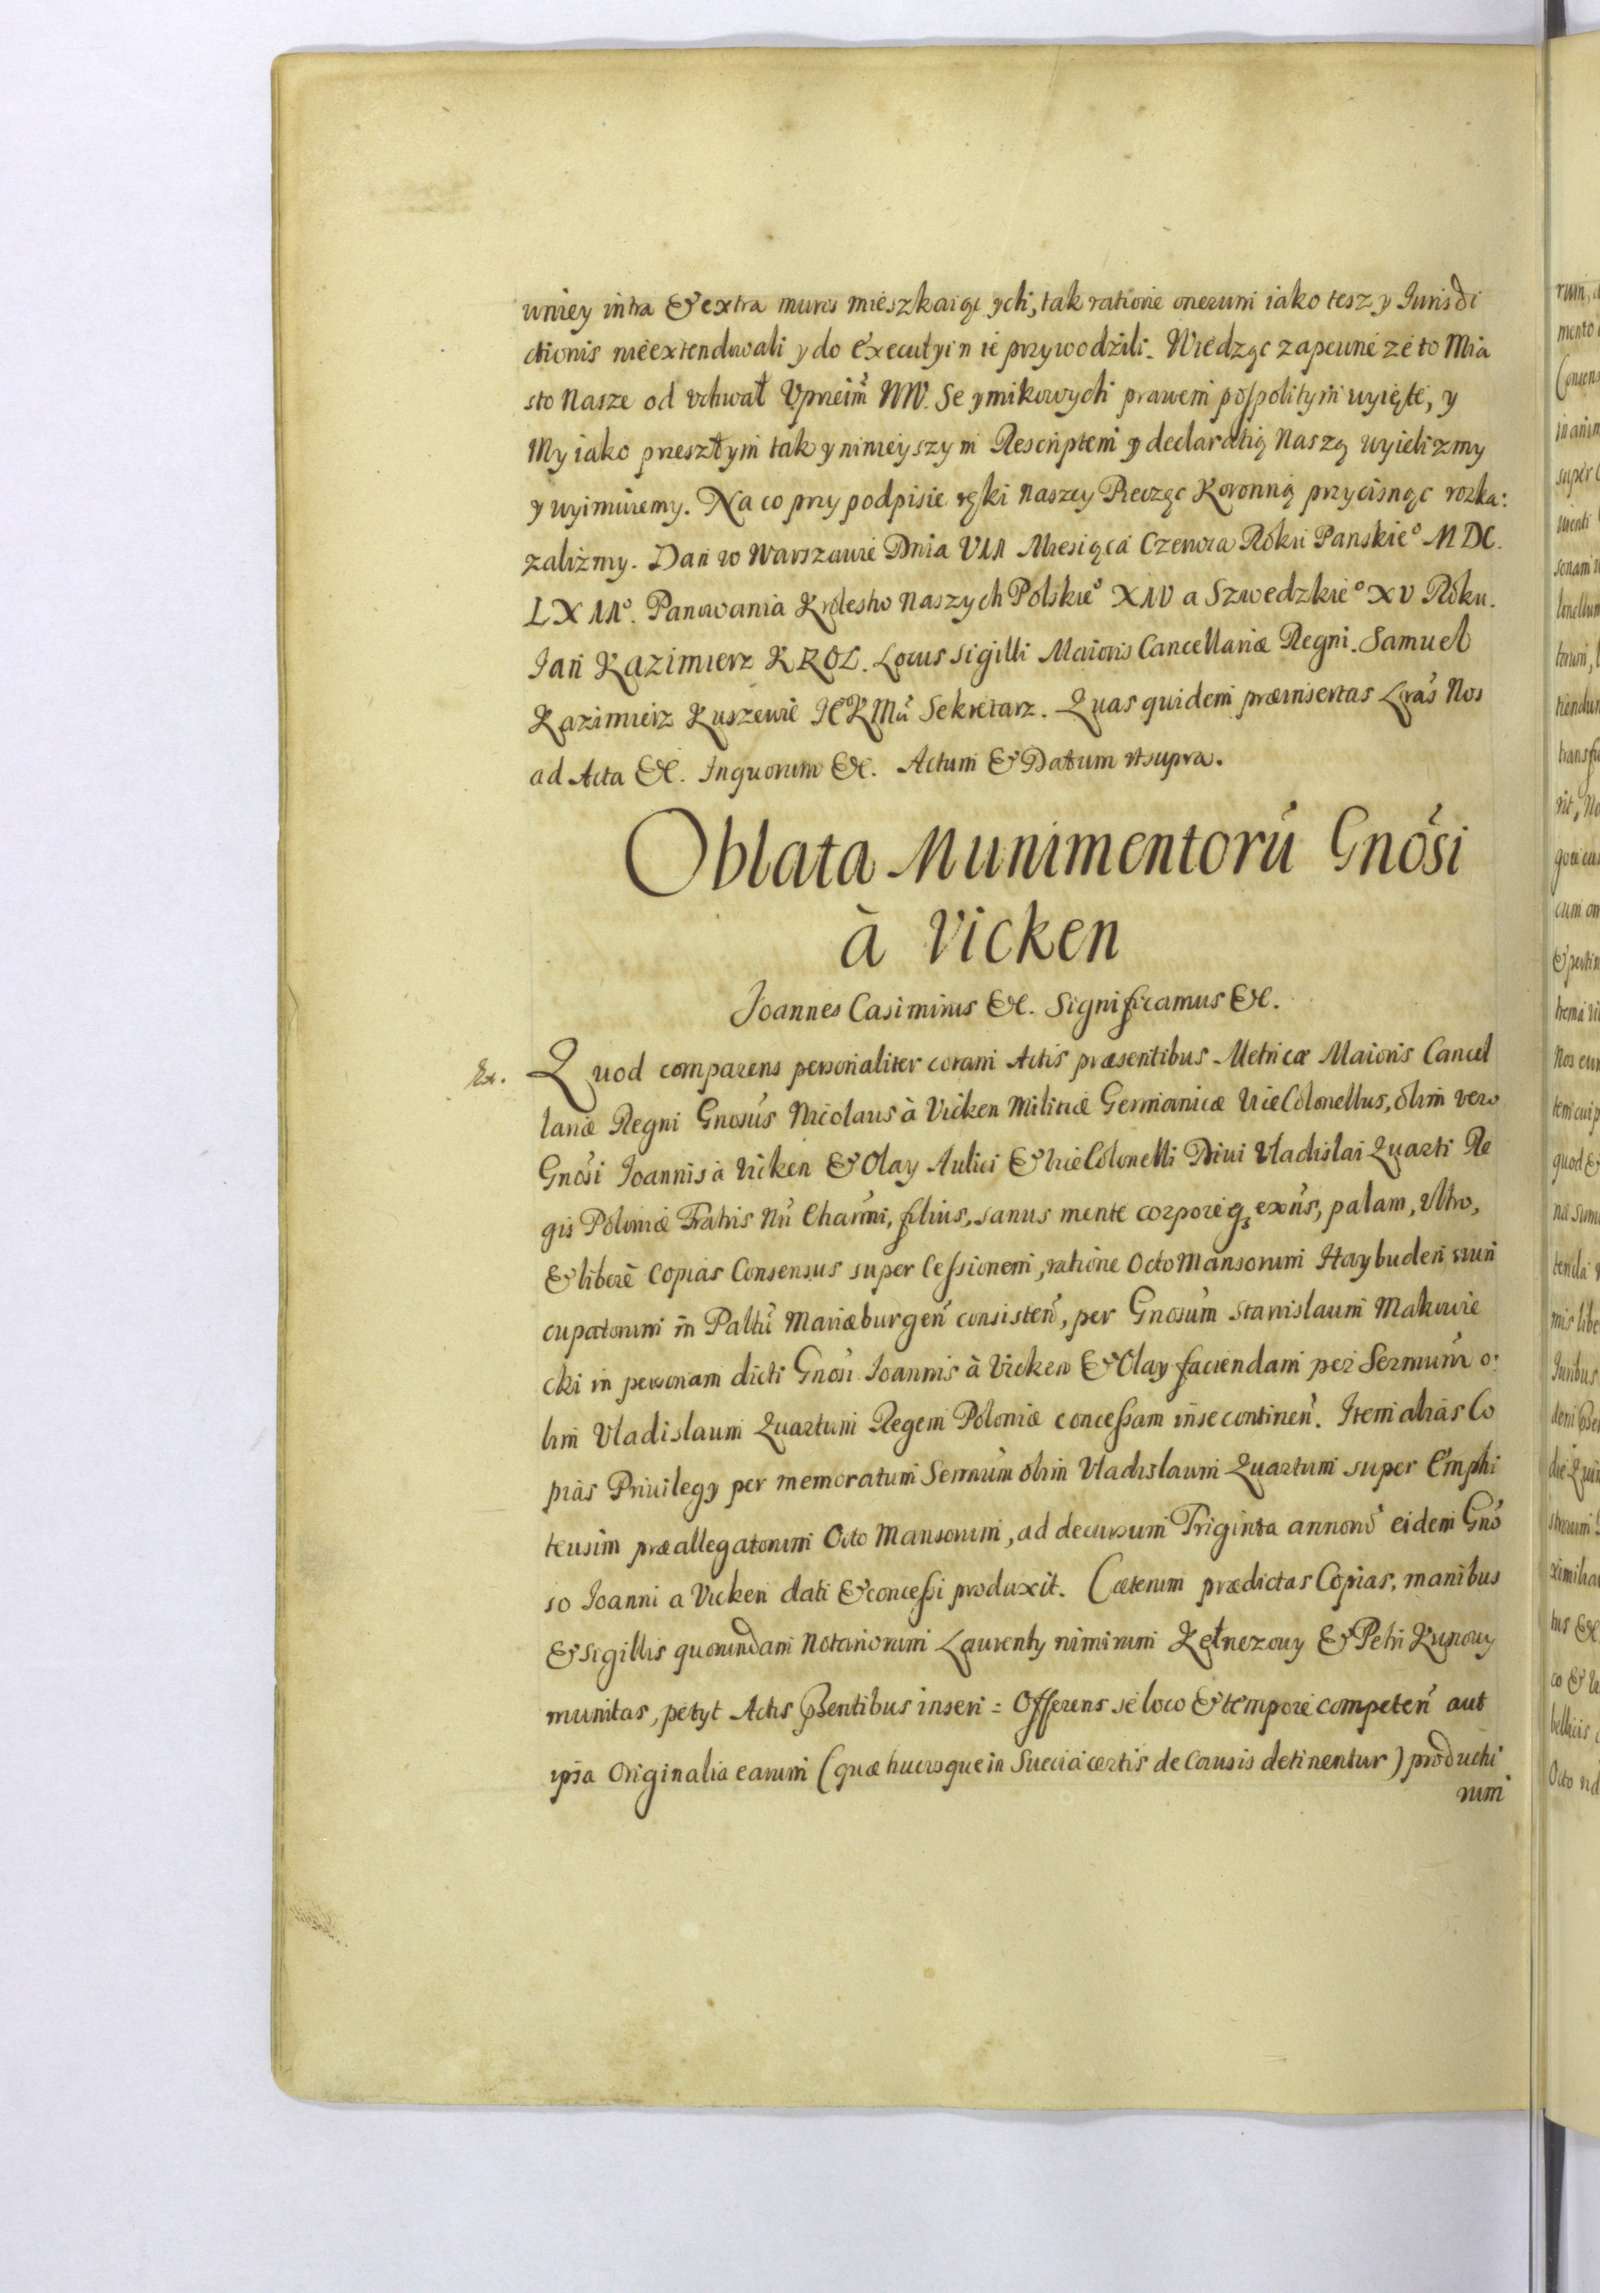 wniey intra & extra muros mieszkaiących, tak ratione onerum iako tesz y Jurisdi
ctionis nieextendowali y do executyi nie przywodzili. Wiedząc zapewne ze to Mia
sto Nasze od vchwał Vprzeim WW. Seymikowych prawem pospolitym wyięte, y
My iako przeszłym tak y ninieyszym Rescriptem y declaratią Naszą wyielizmy
y wyimuiemy. Na co przy podpisie ręki Naszey Pieczęc Koronną przycisnąc rozka:
zalizmy. Dan w Warszawie Dnia VII Miesiąca Czerwca Roku Panskie° MDC.
LXII°. Panowania Krolestw Naszych Polskie° XIV a Szwedzkie° XV Roku.
Jan Kazimierz KROL. Locus Sigilli Maioris Cancellariæ Regni. Samuel
Kazimierz Kuszewic JEKMci Sekretarz. Quas quidem præinsertas Lras Nos
ad Acta &c. Inquorum &c. Actum & Datum vtsupra.
Oblata Munimentorū Gnosi
à Vicken
Joannes Casimirus &c. Significamus &c.
Ex. Quod comparens personaliter coram Actis præsentibus Metricæ Maioris Cancel
lariæ Regni Gnosus Nicolaus à Vicken Militiæ Germanicæ Vice Colonellus, olim vero
Gnosi Joannis à Vicken & Olay Aulici & Vice Colonelli Divi Vladislai Quarti Re
gis Poloniæ Fratris Nri Charmi, filius, sanus mente corporeq3 exns, palam, vltro,
& liberè Copias Consensus super Cessionem, ratione Octo Mansorum Haybuden nun
cupatorum in Palttu Mariæburgen consisten, per Gnosum Stanislaum Makowie
cki in personam dicti Gnosi Joannis à Vicken & Olay faciendam per Sermum o:
lim Vladislaum Quartum Regem Poloniæ concessam in se continen. Item alias Co
pias Privilegy per memoratum Sermum olim Vladislaum Quartum super Emphi
teusim præallegatorum Octo Mansorum, ad decursum Triginta annorū eidem Gno
so Joanni a Vicken dati & concessi produxit. Cæterum prædictas Copias, manibus
& sigillis quorundam Notariorum Laurenty nimirum Kełnezowy & Petri Kunowy
munitas, petyt Actis psentibus inseri = Offerens se loco & tempore competen aut
ipsa Originalia earum (quæ hucusque in Suecia certis de Causis detinentur) productu
rum